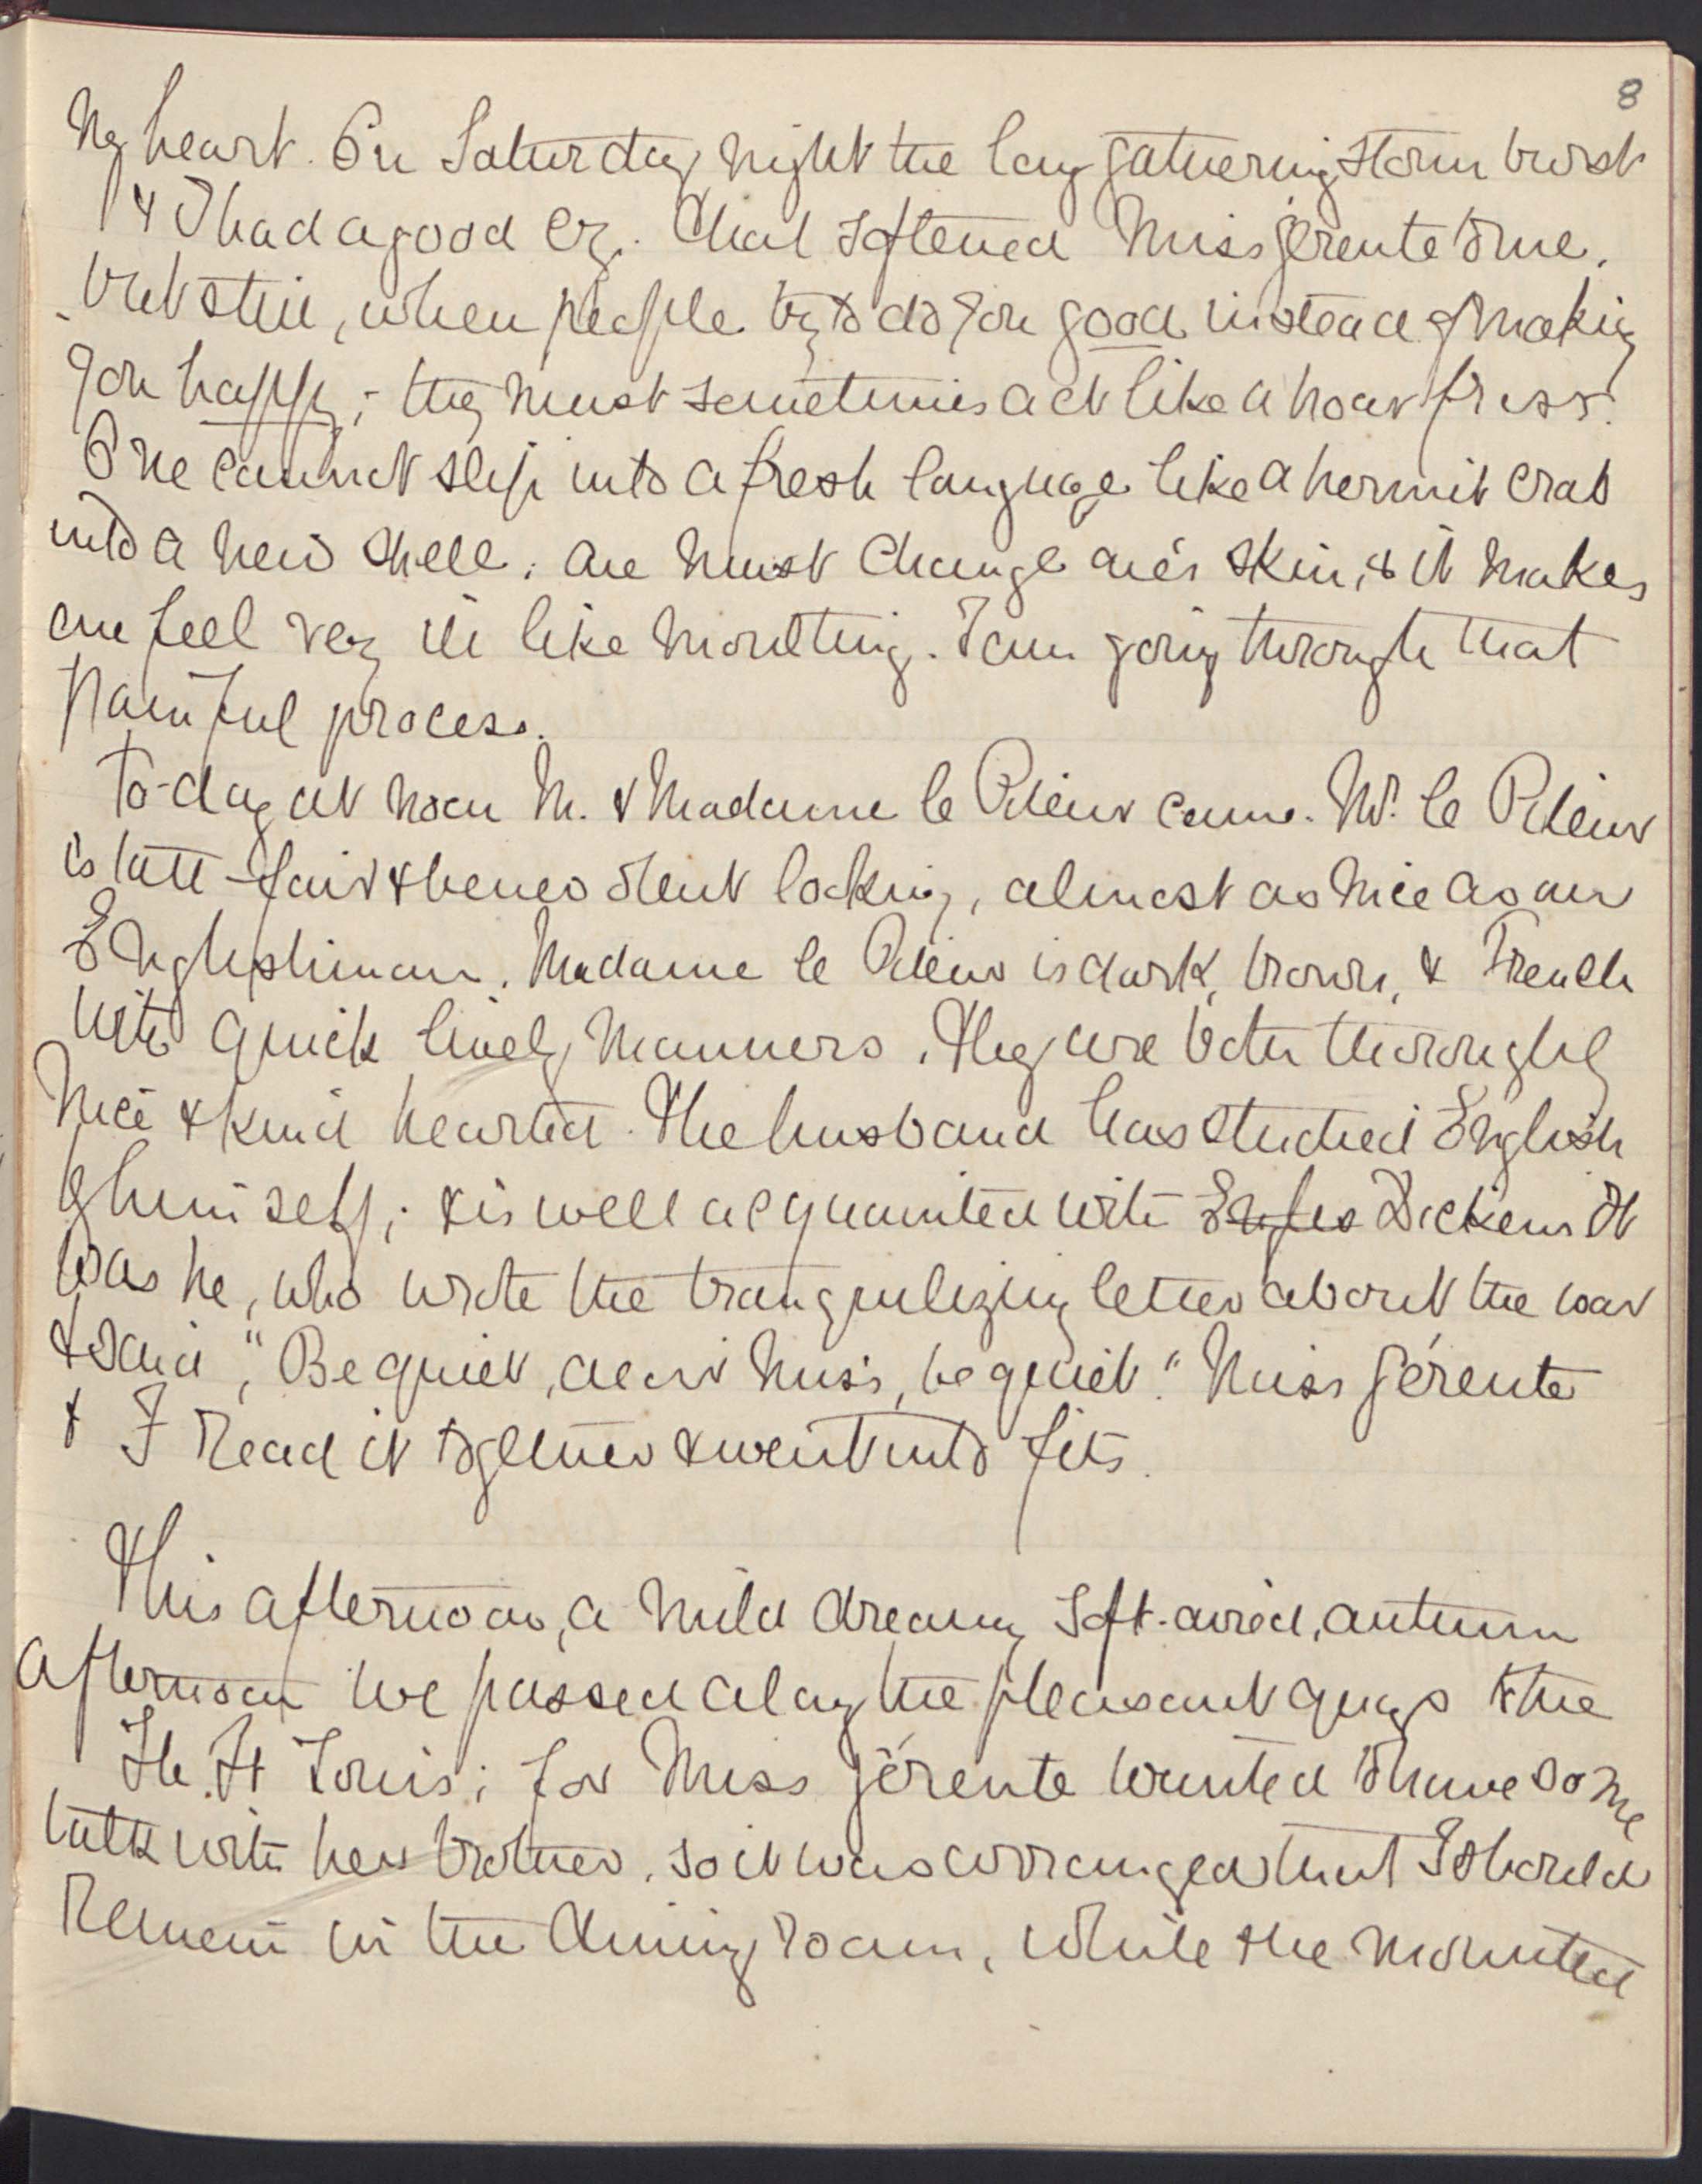 8
my heart. On Saturday night the long gathering storm burst
& I had a good cry. That softened Miss Gérente to me.
But still, when people try to do you good instead of making
you happy; they must sometimes act like a hoar frost.
One cannot slip into a fresh language like a hermit crab
into a new shell; one must change one's skin, & it makes
one feel very ill like moulting. I am going through that
painful process.
To-day at noon M. & Madame le Pileur came. M. le Pileur
is tall - fair & benevolent looking, almost as nice as an
Englishman. Madame le Pileur is dark, brown, & French
with quick lively manners. They are both thoroughly
nice & kind hearted. The husband has studied English
by himself; & is well acquainted with Dickens It
was he, who wrote the tranquilizing letter about the war
& said, "Be quiet, dear Miss, be quiet." Miss Gérente
& I read it together & went into fits.
This afternoon, a mild dreamy soft-aired, autumn
afternoon we passed along the pleasant quays to the
Ile St Louis; for Miss Gérente wanted to have some
talk with her brother. so it was arranged that I should
remain in the dining room, while she mounted